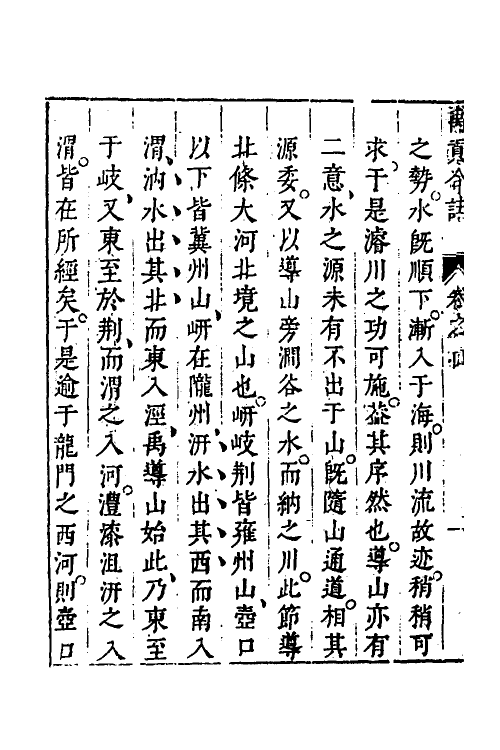 禹貢合註 卷之四
之勢。水旣順下。漸入于海。則川流故迹。稍稍可
求。于是濬川之功可施。葢其序然也。導山亦有
二意、水之源未有不出于山。旣隨山通道。相其
源委。又以導山旁澗谷之水。而納之川。此節導
北條大河北境之山也。岍岐荆皆雍州山、壺口
以下皆冀州山、岍在隴州、汧水出其西而南入
渭、汭水出其北而東入涇、禹導山始此、乃東至
于岐、又東至於荆、而渭之入河。灃漆沮汧之入
渭。皆在所經矣。于是逾于龍門之西河。則壺口